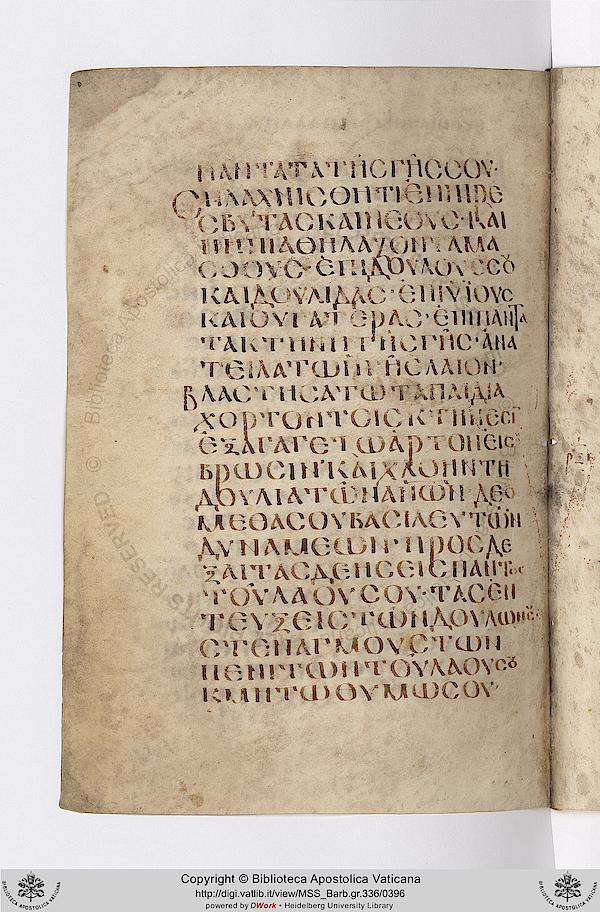 ΠΑΝΤΑΤΑΤΗΣΓΗΣΣΟΥ·
ΣΠΛΑΧΝΙΣΘΗΤΙΕΠΙΠΡΕ
ΣΒΥΤΑΣΚΑΙΝΕΟΥΣ·ΚΑΙ
ΝΗΠΙΑΘΗΛΑΖΟΝΤΑΜΑ
ΣΘΟΥΣ·ΕΠΙΔΟΥΛΟΥΣΣΟΥ
ΚΑΙΔΟΥΛΙΔΑΣ·ΕΠΙΥΙΟΥΣ
ΚΑΙΘΥΓΑΤΕΡΑΣ·ΕΠΙΠΑΝΤΑ
ΤΑΚΤΗΝΗΤΗΣΓΗΣ·ΑΝΑ
ΤΕΙΛΑΤΩΗΓΗΕΛΑΙΟΝ·
ΒΛΑΣΤΗΣΑΤΩΤΑΠΑΙΔΙΑ
ΧΟΡΤΟΝΤΟΙΣΚΤΗΝΕΣΙ
ΕΞΑΓΑΓΕΤΩΑΡΤΟΝΕΙΣ
ΒΡΩΣΙΝ·ΚΑΙΧΛΟΗΝΤΗ
ΔΟΥΛΙΑΤΩΝΑΝΩΝ ΔΕΟ
ΜΕΘΑΣΟΥΒΑΣΙΛΕΥΤΩΝ
ΔΥΝΑΜΕΩΝ·ΠΡΟΣΔΕ
ΞΑΙΤΑΣΔΕΗΣΕΙΣΠΑΝΤΟΣ
ΤΟΥΛΑΟΥΣΟΥ·ΤΑΣΕΝ
ΤΕΥΞΕΙΣΤΩΝΔΟΥΛΩΝΣΟΥ·
ΣΤΕΝΑΓΜΟΥΣΤΩΝ
ΠΕΝΗΤΩΝΤΟΥΛΑΟΥΣΟΥ
ΚΜΗΤΩΘΥΜΩΣΟΥ·
Copyright © Biblioteca Apostolica Vaticana
http://digi.vatlib.it/view/MSS_Barb.gr.336/0396
powered by DWork • Heidelberg University Library